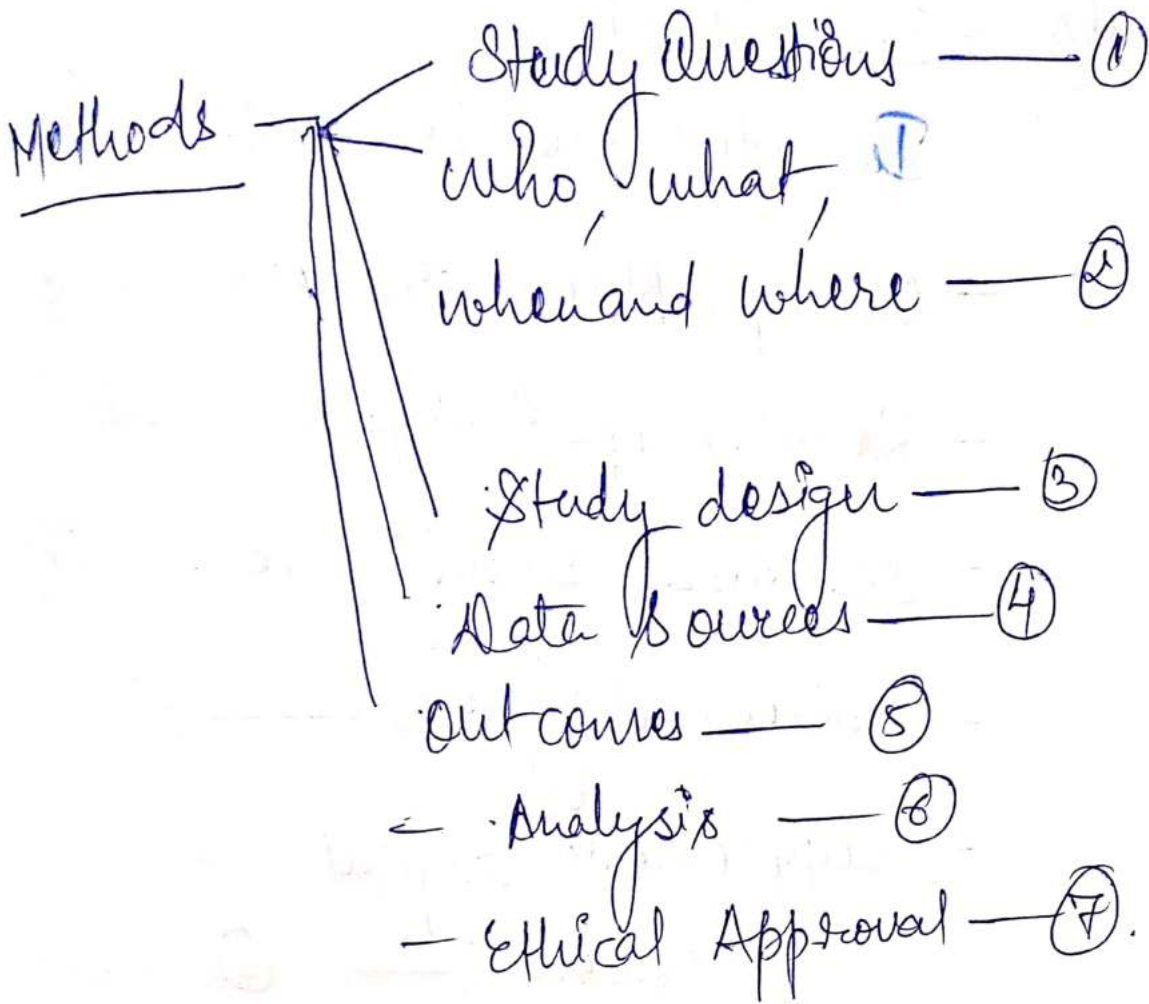 Methods
Study Questions — ①
who, what, I
when and where — ②
Study design — ③
Data Sources — ④
Outcomes — ⑤
- Analysis — ⑥
- Ethical Approval — ⑦.